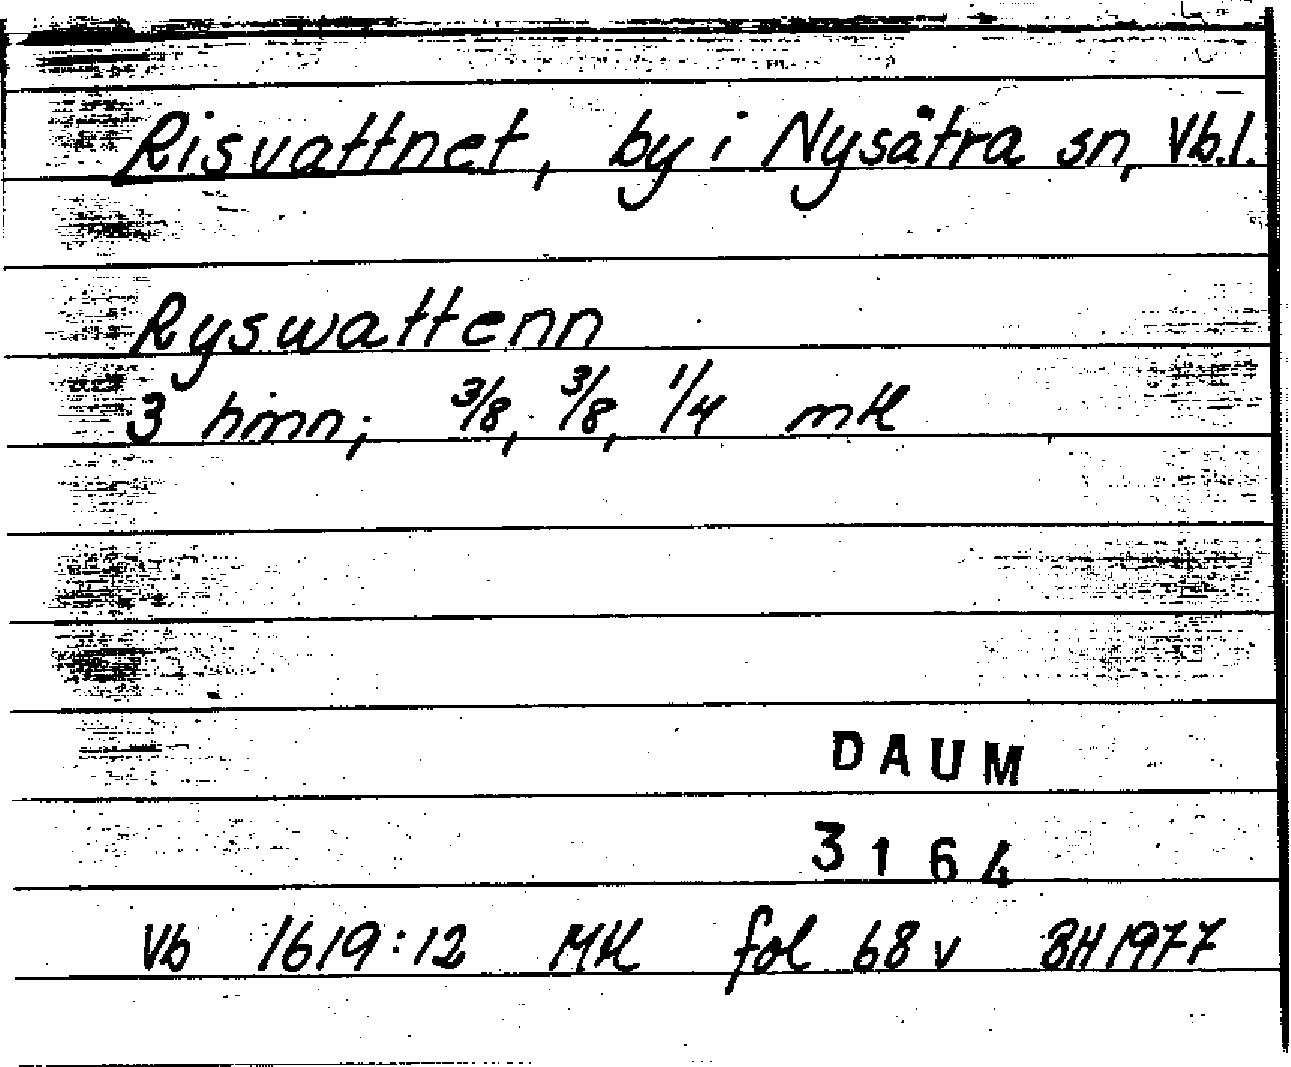 Risvattnet, by i Nysätra sn, Vb.l.
Ryswattenn
3 hmn; 3/8, 3/8, 1/4 mtl
DAUM
3164
Vb 1619:12 Mtl fol 68 v BH 1977